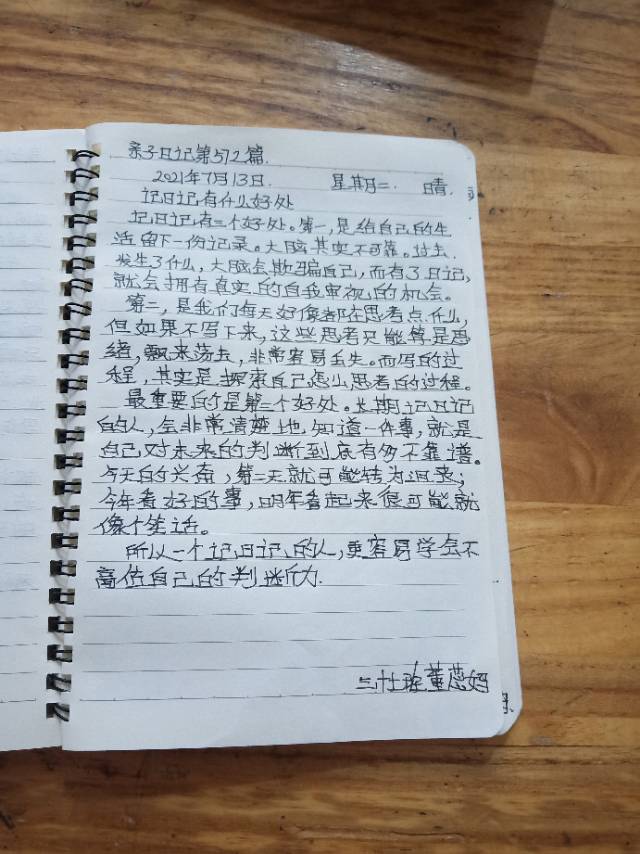 亲子日记第572篇.
2021年7月13日. 星期二. 晴.
记日记有什么好处
记日记有三个好处。第一,是给自己的生
活留下一份记录。大脑其实不可靠。过去.
发生了什么,大脑会欺骗自己,而有了日记,
就会拥有真实的自我审视的机会。
第二,是我们每天好像都在思考点什么,
但如果不写下来,这些思考只能算是思
绪,飘来荡去,非常容易丢失。而写的过
程,其实是探索自己怎么思考的过程。
最重要的是第三个好处。长期记日记
的人,会非常清楚地知道一件事,就是
自己对未来的判断到底有多不靠谱。
今天的兴奋,第二天就可能转为沮丧,
今年看好的事,明年看起来很可能就
像个笑话。
所以一个记日记的人,更容易学会不
高估自己的判断力.
董蕊妈